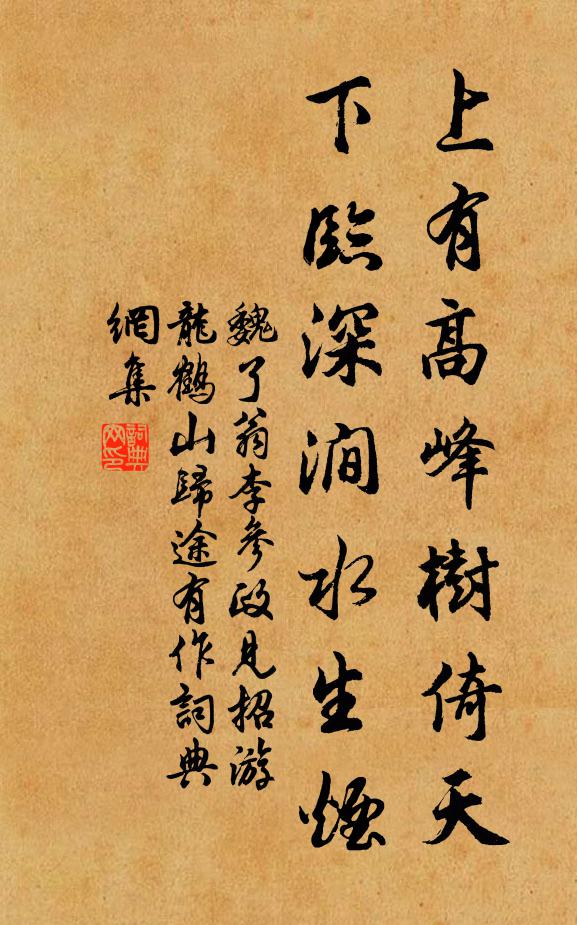 上有高峰樹倚天
下臨深澗水生煙
魏了翁李參政見招游
龍鶴山歸途有作詞典
網集
詞典
网印